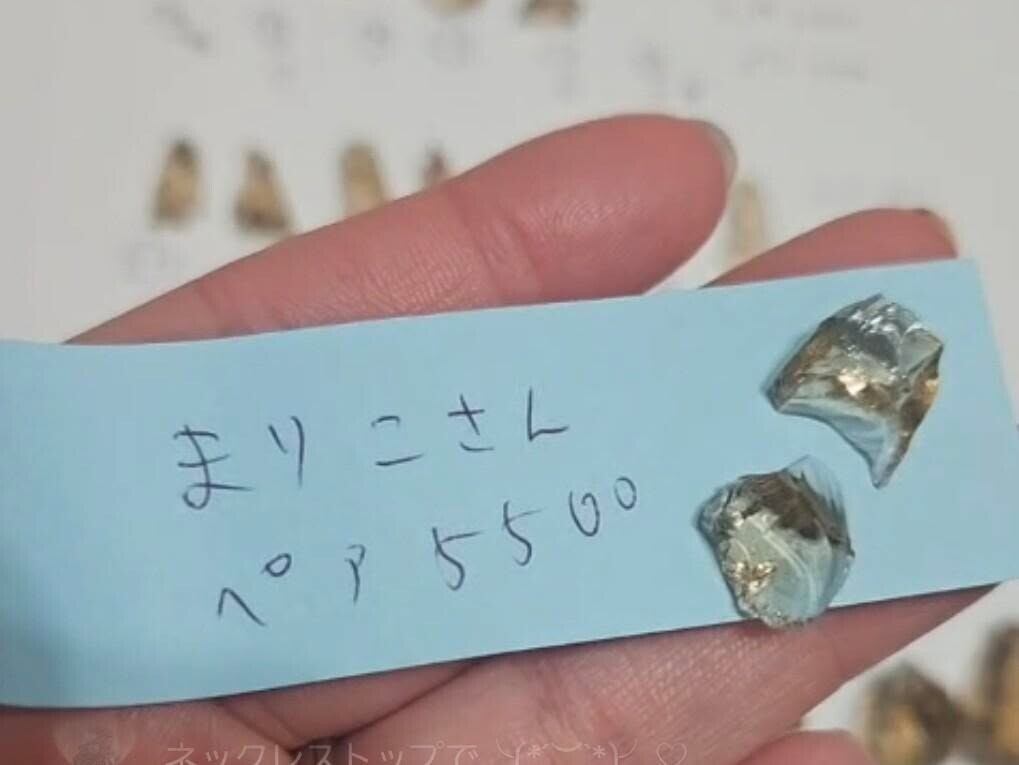 まりこさん
ペア 5500
ネックレストップで ╰(*´︶`*)╯♡